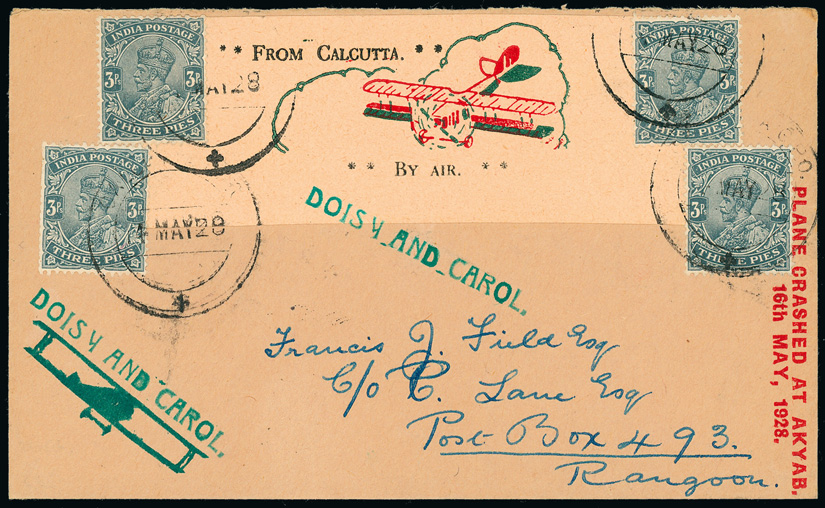 INDIA POSTAGE
3P. 3P.
THREE PIES
* * FROM CALCUTTA. * *
* * BY AIR. * *
INDIA POSTAGE
3P. 3P.
THREE PIES
INDIA POSTAGE
3P. 3P.
THREE PIES
INDIA POSTAGE
3P. 3P.
THREE PIES
MAY 28
MAY 28
MAY 28
MAY
DOISY AND CAROL.
DOISY AND CAROL.
Francis J. Field Esq
C/o C. Lane Esq
Post Box 493.
Rangoon.
PLANE CRASHED AT AKYAB,
16th MAY, 1928.